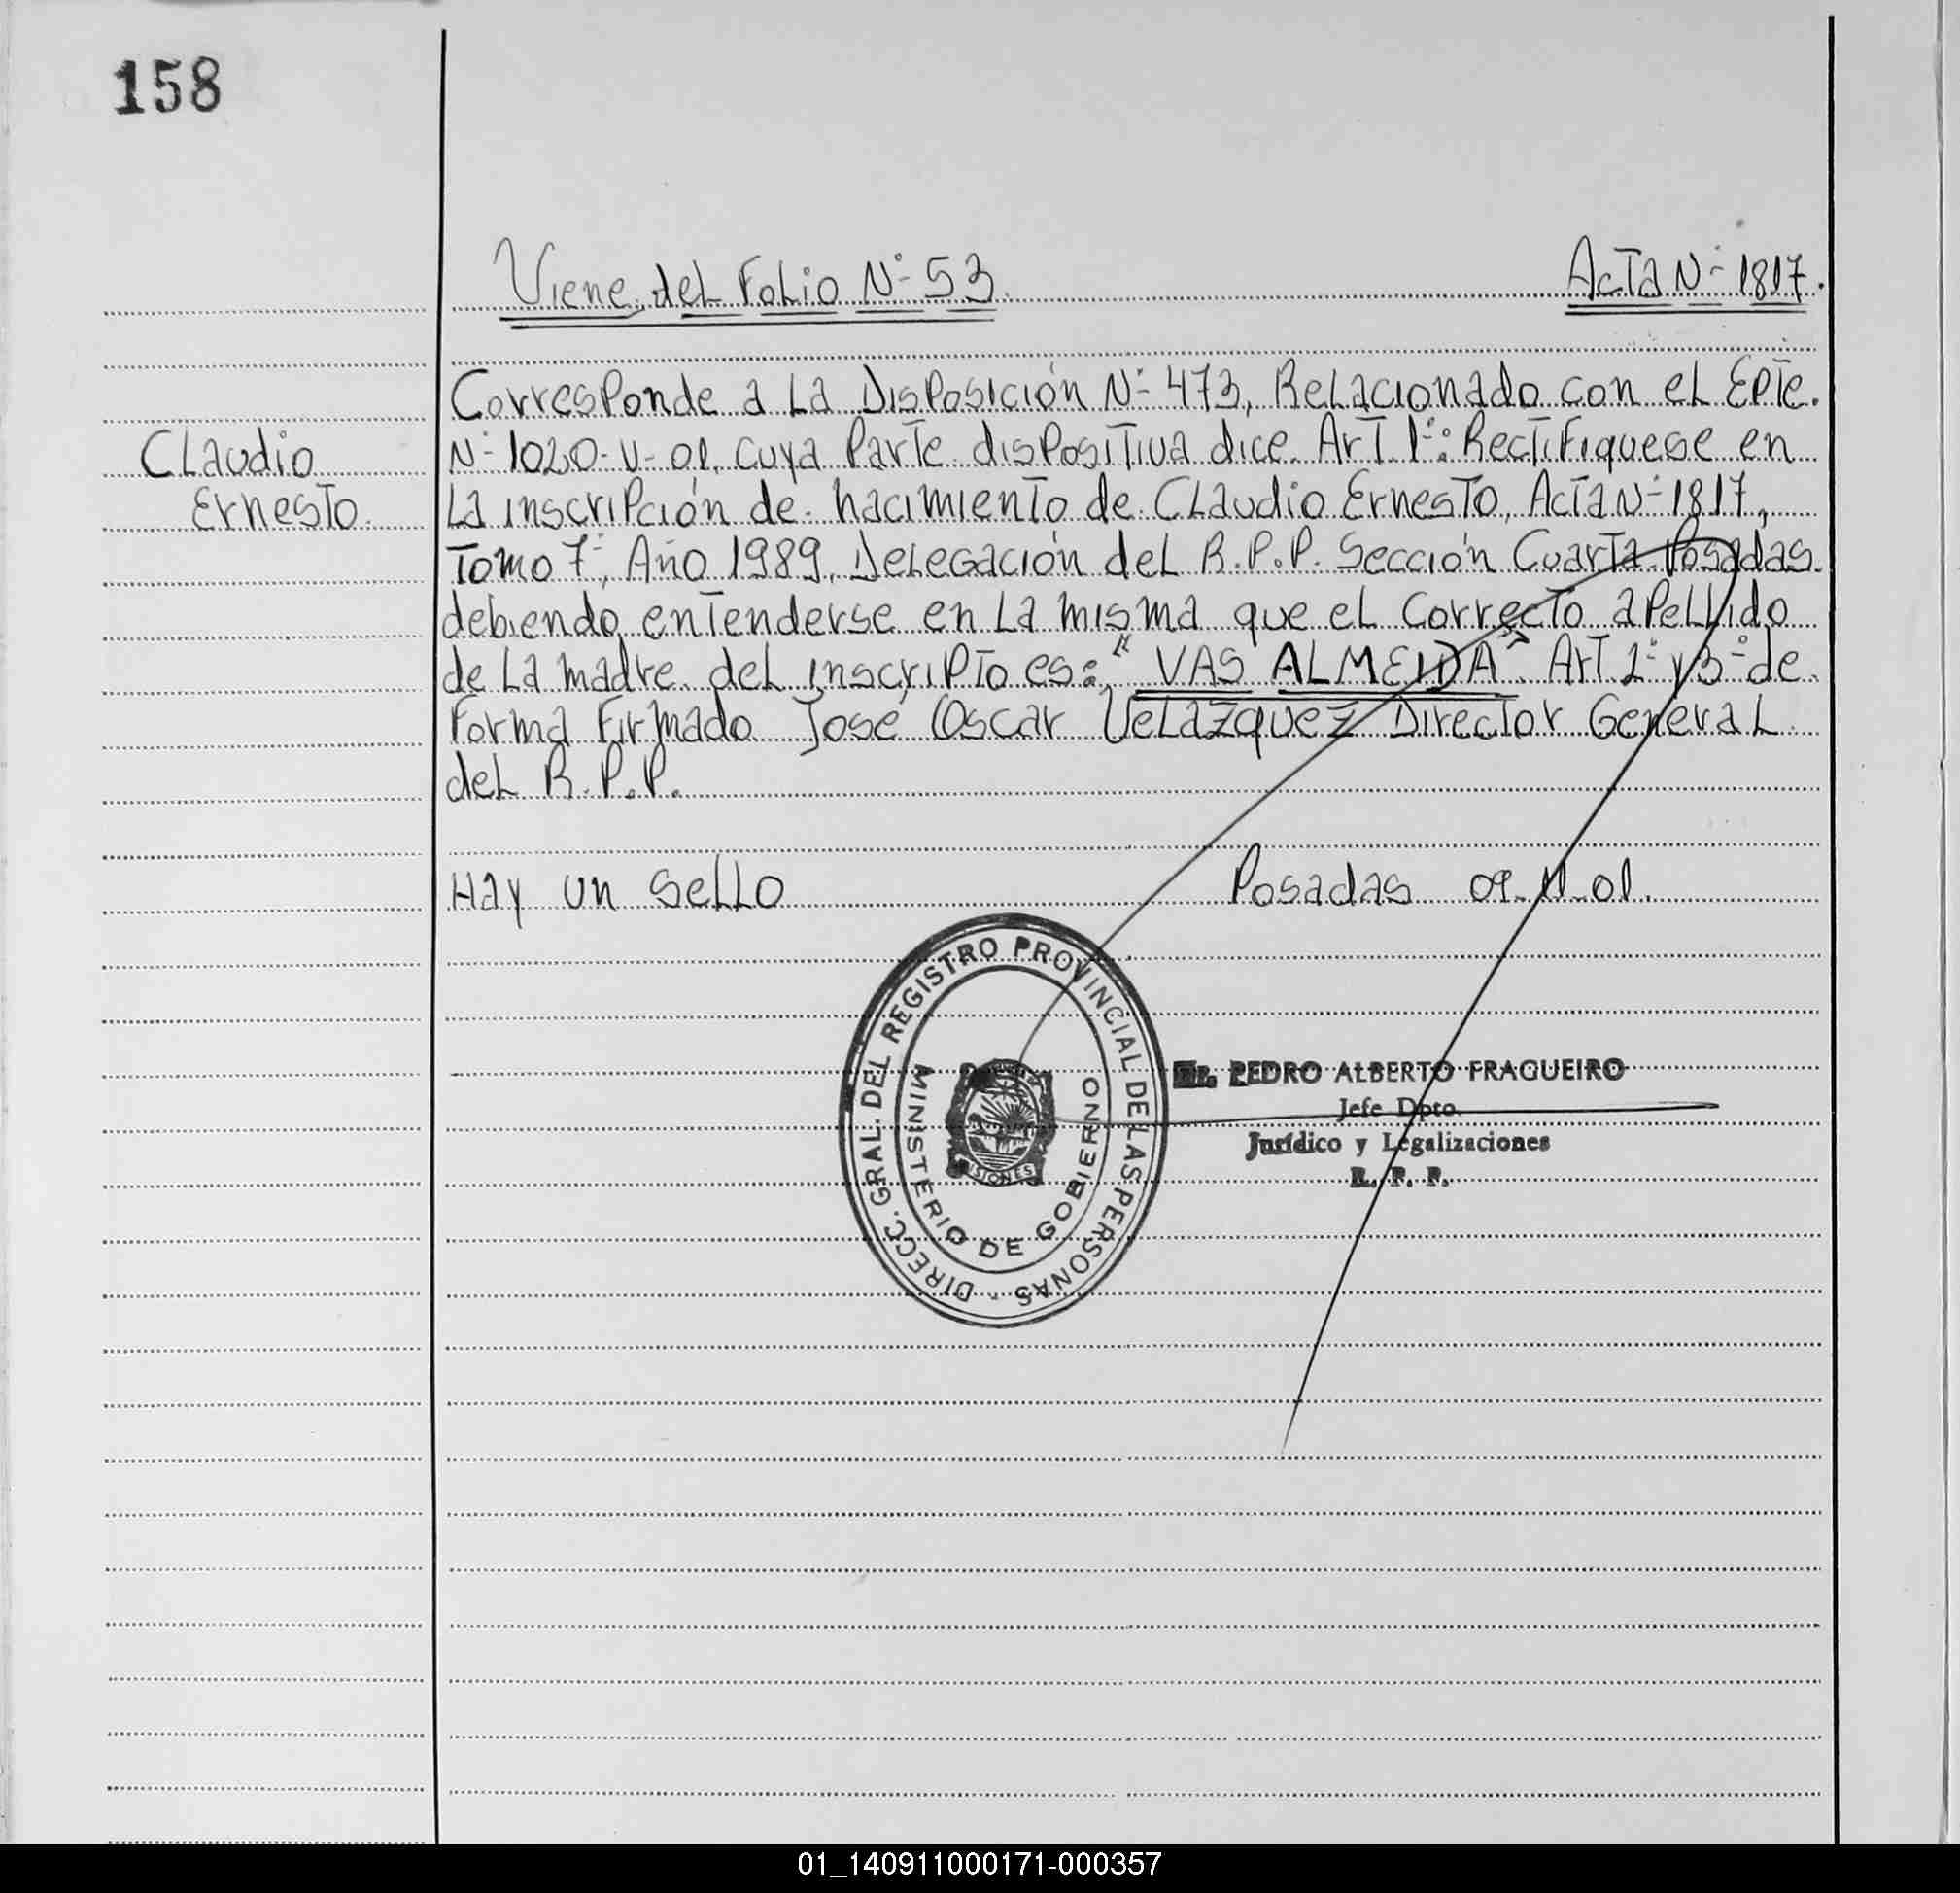 158
Viene del Folio Nº 53 Acta Nº 1817.
Corresponde a la Disposición Nº 473, Relacionado con el Epte.
Claudio
Nº 1020-V-01, cuya parte dispositiva dice Art. 1º: Rectifiquese en
Ernesto.
la inscripción de nacimiento de Claudio Ernesto, Acta Nº 1817,
Tomo 7º, Año 1989, Delegación del R.P.P. Sección Cuarta Posadas
debiendo entenderse en la misma que el correcto apellido
de la madre del inscripto es: "VAS ALMEIDA" Art 2º y 3º de
forma Firmado José Oscar Velazquez Director General
del R.P.P.
Hay un sello Posadas 09-11-01.
DIRECC. GRAL. DEL REGISTRO PROVINCIAL DE LAS PERSONAS
MINISTERIO DE GOBIERNO
MISIONES
PEDRO ALBERTO FRAGUEIRO
Jefe Dpto.
Jurídico y Legalizaciones
R. P. P.
01_140911000171-000357